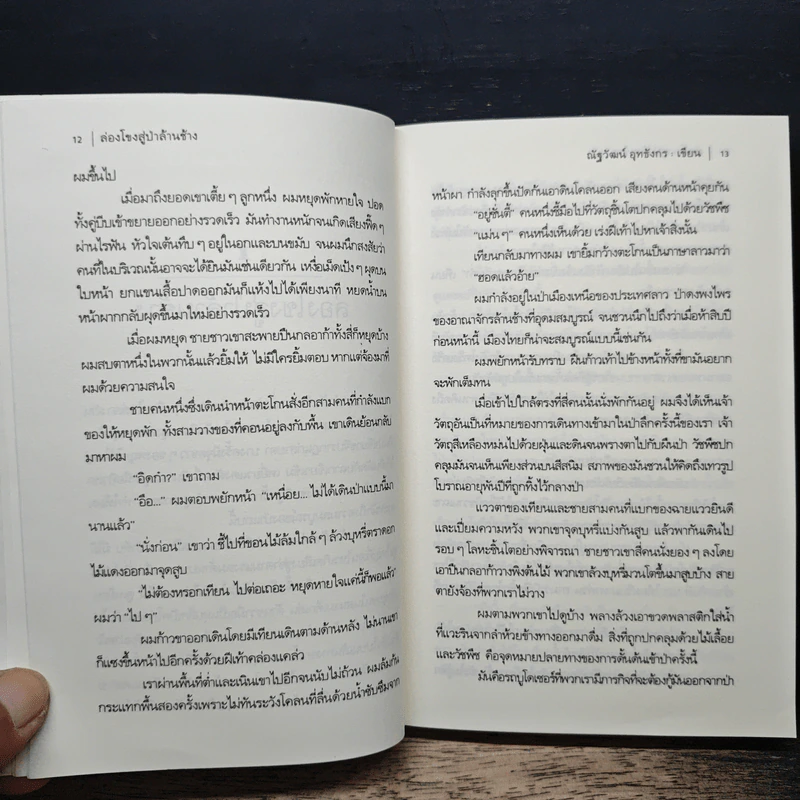 12 | ล่องโขงสู่ป่าล้านช้าง
ผมขึ้นไป
เมื่อมาถึงยอดเขาเตี้ย ๆ ลูกหนึ่ง ผมหยุดพักหายใจ ปอด
ทั้งคู่บีบเข้าขยายออกอย่างรวดเร็ว มันทำงานหนักจนเกิดเสียงฟี้ด ๆ
ผ่านไรฟัน หัวใจเต้นทึบ ๆ อยู่ในอกและบนขมับ จนผมนึกสงสัยว่า
คนที่ในบริเวณนั้นอาจจะได้ยินมันเช่นเดียวกัน เหงื่อเม็ดเป้ง ๆ ผุดบน
ใบหน้า ยกแขนเสื้อปาดออกมันก็แห้งไปได้เพียงนาที หยดน้ำบน
หน้าผากกลับผุดขึ้นมาใหม่อย่างรวดเร็ว
เมื่อผมหยุด ชายชาวเขาสะพายปืนกลอาก้าทั้งสี่ก็หยุดบ้าง
ผมสบตาหนึ่งในพวกนั้นแล้วยิ้มให้ ไม่มีใครยิ้มตอบ หากแต่จ้องมาที่
ผมด้วยความสนใจ
ชายคนหนึ่งซึ่งเดินนำหน้าตะโกนสั่งอีกสามคนที่กำลังแบก
ของให้หยุดพัก ทั้งสามวางของที่คอนอยู่ลงกับพื้น เขาเดินย้อนกลับ
มาหาผม
"อิดก๋า?" เขาถาม
"อือ..." ผมตอบพยักหน้า "เหนื่อย... ไม่ได้เดินป่าแบบนี้มา
นานแล้ว"
"นั่งก่อน" เขาว่า ชี้ไปที่ขอนไม้ล้มใกล้ ๆ ล้วงบุหรี่ตราดอก
ไม้แดงออกมาจุดสูบ
"ไม่ต้องหรอกเทียน ไปต่อเถอะ หยุดหายใจแค่นี้ก็พอแล้ว"
ผมว่า "ไป ๆ"
ผมก้าวขาออกเดินโดยมีเทียนเดินตามด้านหลัง ไม่นานเขา
ก็แซงขึ้นหน้าไปอีกครั้งด้วยฝีเท้าคล่องแคล่ว
เราผ่านพื้นที่ต่ำและเนินเขาไปอีกจนนับไม่ถ้วน ผมล้มก้น
กระแทกพื้นสองครั้งเพราะไม่ทันระวังโคลนที่ลื่นด้วยน้ำซับซึมจาก
ณัฐวัฒน์ อุทธังกร : เขียน | 13
หน้าผา กำลังลุกขึ้นปัดก้นเอาดินโคลนออก เสียงคนด้านหน้าคุยกัน
"อยู่ซั่นตี้" คนหนึ่งชี้มือไปที่วัตถุชิ้นโตปกคลุมไปด้วยวัชพืช
"แม่น ๆ" คนหนึ่งเห็นด้วย เร่งฝีเท้าไปหาเจ้าสิ่งนั้น
เทียนกลับมาทางผม เขายิ้มกว้างตะโกนเป็นภาษาลาวมาว่า
"ฮอดแล้วอ้าย"
ผมกำลังอยู่ในป่าเมืองเหนือของประเทศลาว ป่าดงพงไพร
ของอาณาจักรล้านช้างที่อุดมสมบูรณ์ จนชวนนึกไปถึงว่าเมื่อห้าสิบปี
ก่อนหน้านี้ เมืองไทยก็น่าจะสมบูรณ์แบบนี้เช่นกัน
ผมพยักหน้ารับทราบ ฝืนก้าวเท้าไปข้างหน้าทั้งที่ขามันอยาก
จะพักเต็มทน
เมื่อเข้าไปใกล้ตรงที่สี่คนนั้นนั่งพักกันอยู่ ผมจึงได้เห็นเจ้า
วัตถุอันเป็นที่หมายของการเดินทางเข้ามาในป่าลึกครั้งนี้ของเรา เจ้า
วัตถุสีเหลืองหม่นไปด้วยฝุ่นและดินจนพรางตาไปกับผืนป่า วัชพืชปก
คลุมมันจนเห็นเพียงส่วนบนสีสนิม สภาพของมันชวนให้คิดถึงเทวรูป
โบราณอายุพันปีที่ถูกทิ้งไว้กลางป่า
แววตาของเทียนและชายสามคนที่แบกของฉายแววยินดี
และเปี่ยมความหวัง พวกเขาจุดบุหรี่แบ่งกันสูบ แล้วพากันเดินไป
รอบ ๆ โลหะชิ้นโตอย่างพิจารณา ชายชาวเขาสี่คนนั่งยอง ๆ ลงโดย
เอาปืนกลอาก้าวางพิงต้นไม้ พวกเขาล้วงบุหรี่มวนโตขึ้นมาสูบบ้าง สาย
ตายังจ้องที่พวกเราไม่วาง
ผมตามพวกเขาไปดูบ้าง พลางล้วงเอาขวดพลาสติกใส่น้ำ
ที่แวะรินจากลำห้วยข้างทางออกมาดื่ม สิ่งที่ถูกปกคลุมด้วยไม้เลื้อย
และวัชพืช คือจุดหมายปลายทางของการดั้นด้นเข้าป่าครั้งนี้
มันคือรถบูโดเซอร์ที่พวกเรามีภารกิจที่จะต้องกู้มันออกจากป่า